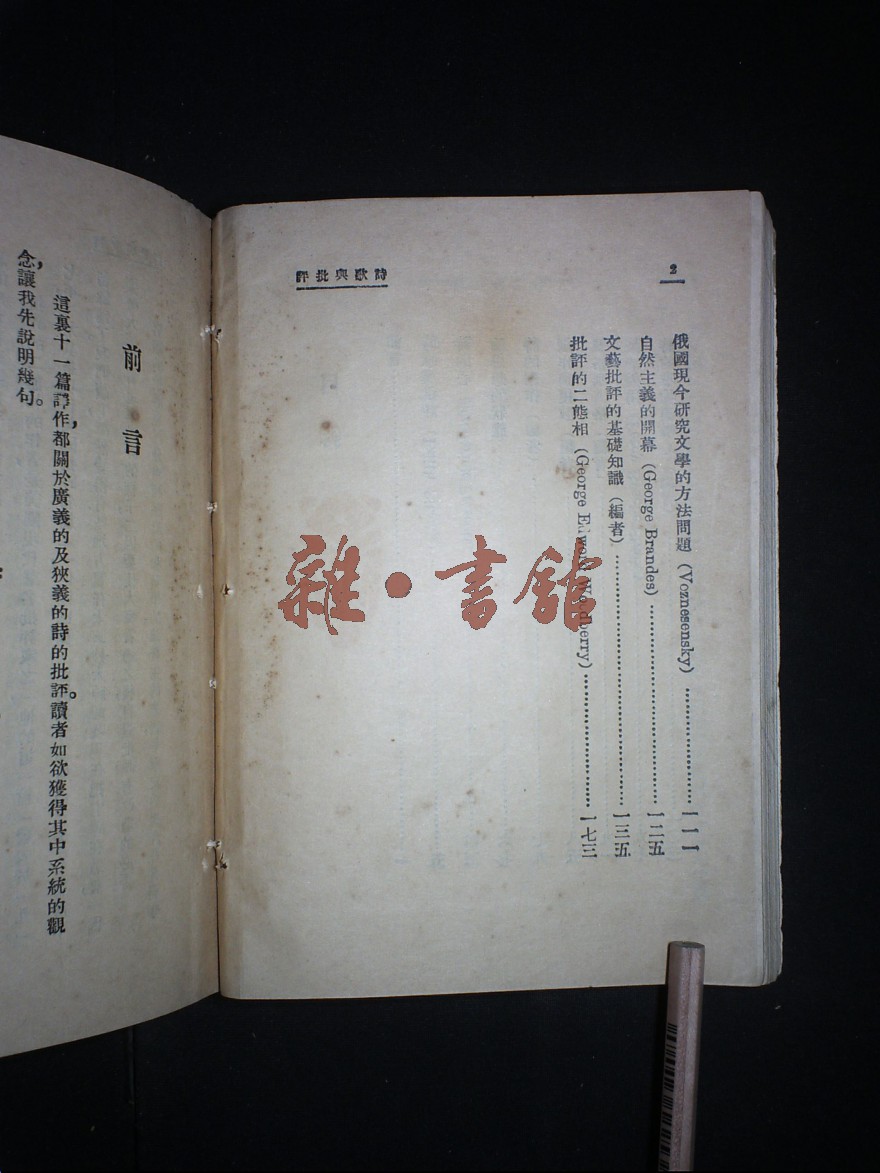 2
詩歌與批評
俄國現今研究文學的方法問題(Voznesensky)……………………一一一
自然主義的開幕(George Brandes)……………………一二五
文藝批評的基礎知識(編者)……………………一三五
批評的二態相(George Edward Woodberry)……………………一七三
雜·書館
前言
這裏十一篇譯作,都關於廣義的及狹義的詩的批評。讀者如欲獲得其中系統的觀
念,讓我先說明幾句。